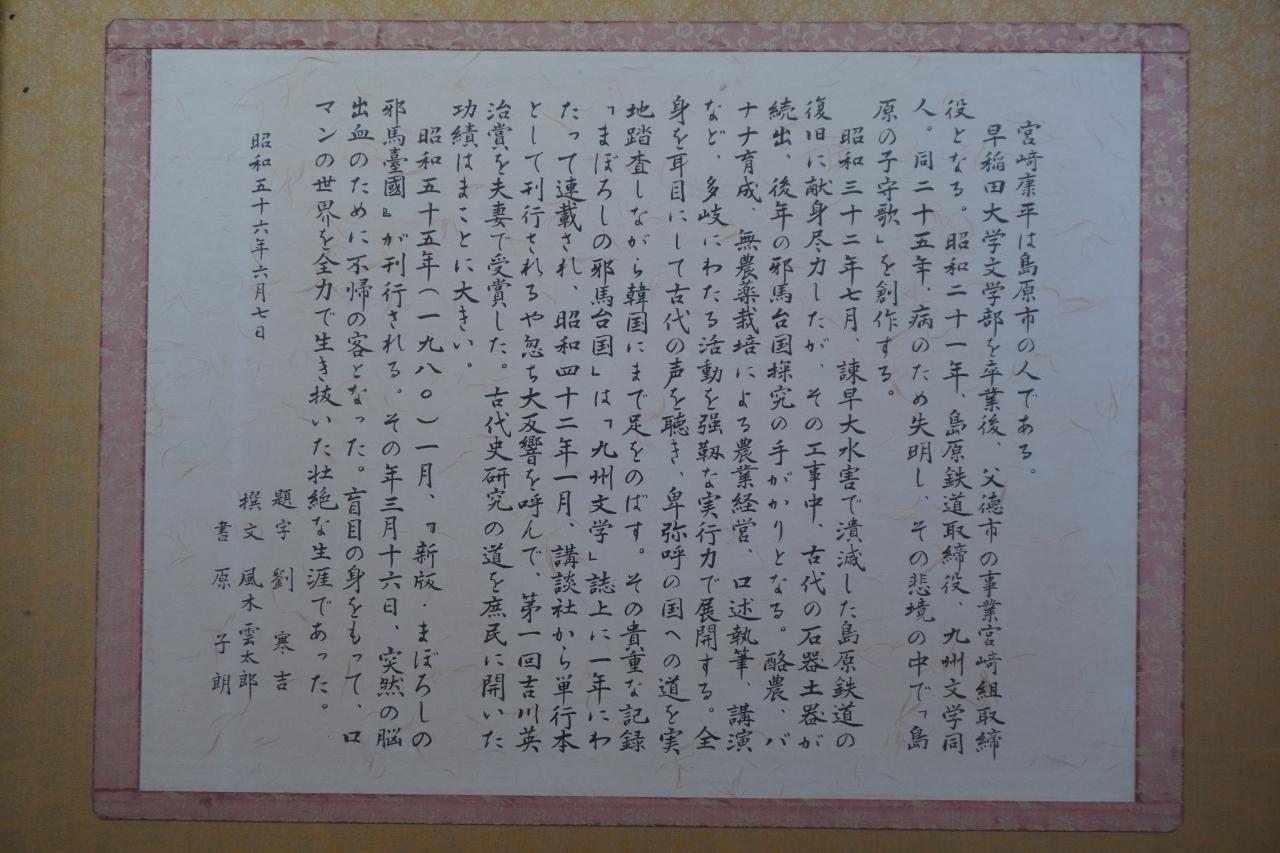 宮﨑康平は島原市の人である。
早稲田大学文学部を卒業後、父徳市の事業宮﨑組取締
役となる。昭和二十一年、島原鉄道取締役、九州文学同
人。同二十五年、病のため失明し、その悲境の中で「島
原の子守歌」を創作する。
昭和三十二年七月、諫早大水害で潰滅した島原鉄道の
復旧に献身尽力したが、その工事中、古代の石器土器が
続出、後年の邪馬台国探究の手がかりとなる。酪農、バ
ナナ育成、無農薬栽培による農業経営、口述執筆、講演
など、多岐にわたる活動を強靱な実行力で展開する。全
身を耳目にして古代の声を聴き、卑弥呼の国への道を実
地踏査しながら韓国にまで足をのばす。その貴重な記録
「まぼろしの邪馬台国」は「九州文学」誌上に一年にわ
たって連載され、昭和四十二年一月、講談社から単行本
として刊行されるや忽ち大反響を呼んで、第一回吉川英
治賞を夫妻で受賞した。古代史研究の道を庶民に開いた
功績はまことに大きい。
昭和五十五年(一九八〇)一月、『新版・まぼろしの
邪馬臺國』が刊行される。その年三月十六日、突然の脳
出血のために不帰の客となった。盲目の身をもって、ロ
マンの世界を全力で生き抜いた壮絶な生涯であった。
題字 劉 寒吉
撰文 風木雲太郎
書 原 子朗
昭和五十六年六月七日